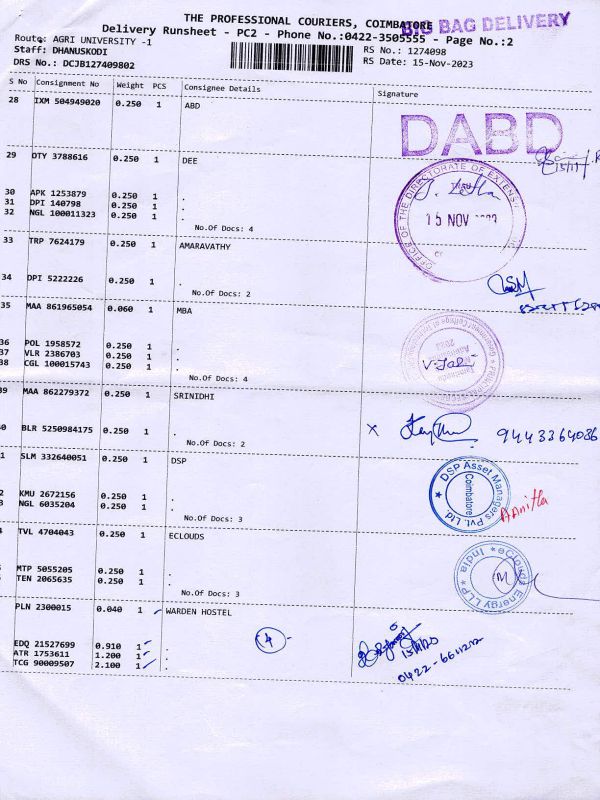 THE PROFESSIONAL COURIERS, COIMBATORE
BIG BAG DELIVERY
Delivery Runsheet - PC2 - Phone No.:0422-3505555 - Page No.:2
Route: AGRI UNIVERSITY -1
RS No.: 1274098
Staff: DHANUSKODI
RS Date: 15-Nov-2023
DRS No.: DCJB127409802
S No Consignment No Weight PCS Consignee Details Signature
28 IXM 504949020 0.250 1 ABD
DABD
29 OTY 3788616 0.250 1 DEE
30 APK 1253879 0.250 1 .
31 DPI 140798 0.250 1 .
32 NGL 100011323 0.250 1 .
No.Of Docs: 4
OFFICE OF THE DIRECTORATE OF EXTENS
15 NOV
33 TRP 7624179 0.250 1 AMARAVATHY
34 DPI 5222226 0.250 1 .
No.Of Docs: 2
35 MAA 861965054 0.060 1 MBA
36 POL 1958572 0.250 1 .
37 VLR 2386703 0.250 1 .
38 CGL 100015743 0.250 1 .
No.Of Docs: 4
39 MAA 862279372 0.250 1 SRINIDHI
40 BLR 5250984175 0.250 1 .
No.Of Docs: 2
X 9443364036
1 SLM 332640051 0.250 1 DSP
2 KMU 2672156 0.250 1 .
3 NGL 6035204 0.250 1 .
No.Of Docs: 3
DSP Asset Managers Pvt. Ltd.
Coimbatore
4 TVL 4704043 0.250 1 ECLOUDS
MTP 5055205 0.250 1 .
TEN 2065635 0.250 1 .
No.Of Docs: 3
eClouds Energy LLP * India *
PLN 2300015 0.040 1 WARDEN HOSTEL
EDQ 21527699 0.910 1 .
ATR 1753611 1.200 1 .
TCG 90009507 2.100 1 .
4
0422-6611212